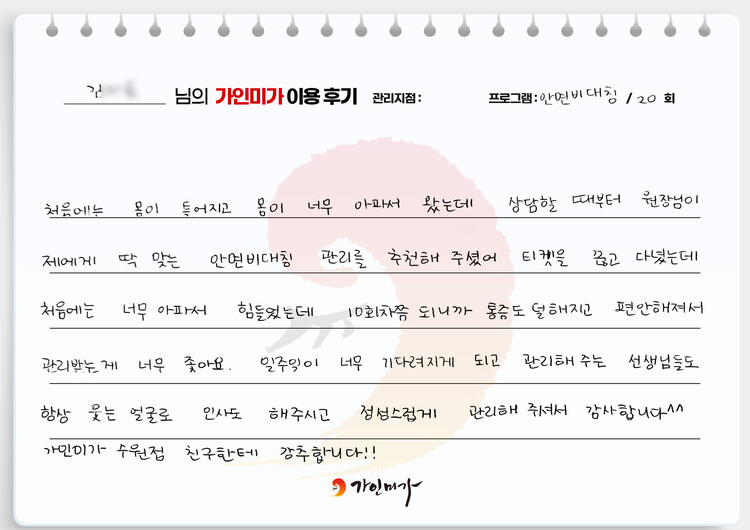 김 님의 가인미가 이용 후기 관리지점 : 프로그램 : 안면비대칭 / 20 회
처음에는 몸이 틀어지고 몸이 너무 아파서 왔는데 상담할 때부터 원장님이
제에게 딱 맞는 안면비대칭 관리를 추천해 주셨어 티켓을 끊고 다녔는데
처음에는 너무 아파서 힘들었는데 10회차쯤 되니까 통증도 덜해지고 편안해져서
관리받는게 너무 좋아요. 일주일이 너무 기다려지게 되고 관리해 주는 선생님들도
항상 웃는 얼굴로 인사도 해주시고 정성스럽게 관리해 주셔서 감사합니다^^
가인미가 수원점 친구한테 강추합니다!!
가인미가